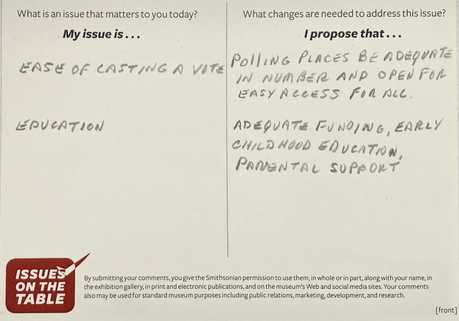 What is an issue that matters to you today?
My issue is . . .
EASE OF CASTING A VOTE
EDUCATION
What changes are needed to address this issue?
I propose that . . .
POLLING PLACES BE ADEQUATE
IN NUMBER AND OPEN FOR
EASY ACCESS FOR ALL.
ADEQUATE FUNDING, EARLY
CHILDHOOD EDUCATION,
PARENTAL SUPPORT
ISSUES
ON THE
TABLE
By submitting your comments, you give the Smithsonian permission to use them, in whole or in part, along with your name, in
the exhibition gallery, in print and electronic publications, and on the museum's Web and social media sites. Your comments
also may be used for standard museum purposes including public relations, marketing, development, and research.
[front]